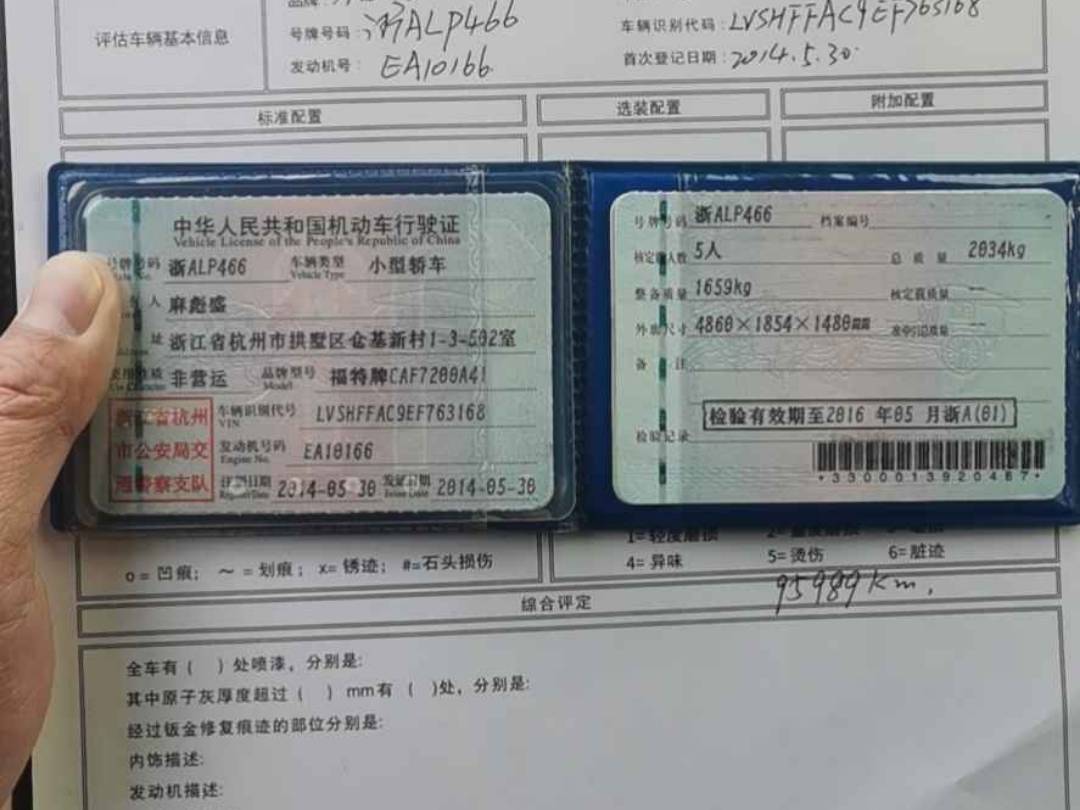 评估车辆基本信息
号牌号码：浙ALP466
发动机号：EA10166
车辆识别代码：LVSHFFAC9EF763168
首次登记日期：2014.5.30
标准配置
选装配置
附加配置
中华人民共和国机动车行驶证
Vehicle License of the People's Republic of China
号牌号码 浙ALP466 车辆类型 小型轿车
Vehicle Type
人 麻彪盛
址 浙江省杭州市拱墅区仓基新村1-3-502室
使用性质 非营运 品牌型号 福特牌CAF7200A41
Use Character Model
浙江省杭州
市公安局交
通警察支队
车辆识别代号 LVSHFFAC9EF763168
VIN
发动机号码 EA10166
Engine No.
注册日期 2014-05-30 发证日期 2014-05-30
Register Date Issue Date
号牌号码 浙ALP466 档案编号
核定载人数 5人 总质量 2034kg
整备质量 1659kg 核定载质量 --
外廓尺寸 4860×1854×1480mm 准牵引总质量 --
备注
检验有效期至2016 年05 月浙A(01)
检验记录
*3300013920487*
o=凹痕； ～=划痕； x=锈迹； #=石头损伤
1=轻度磨损
4=异味 5=烫伤 6=脏迹
综合评定
95989km.
全车有（ ）处喷漆，分别是:
其中原子灰厚度超过（ ）mm有（ ）处，分别是:
经过钣金修复痕迹的部位分别是:
内饰描述:
发动机描述: